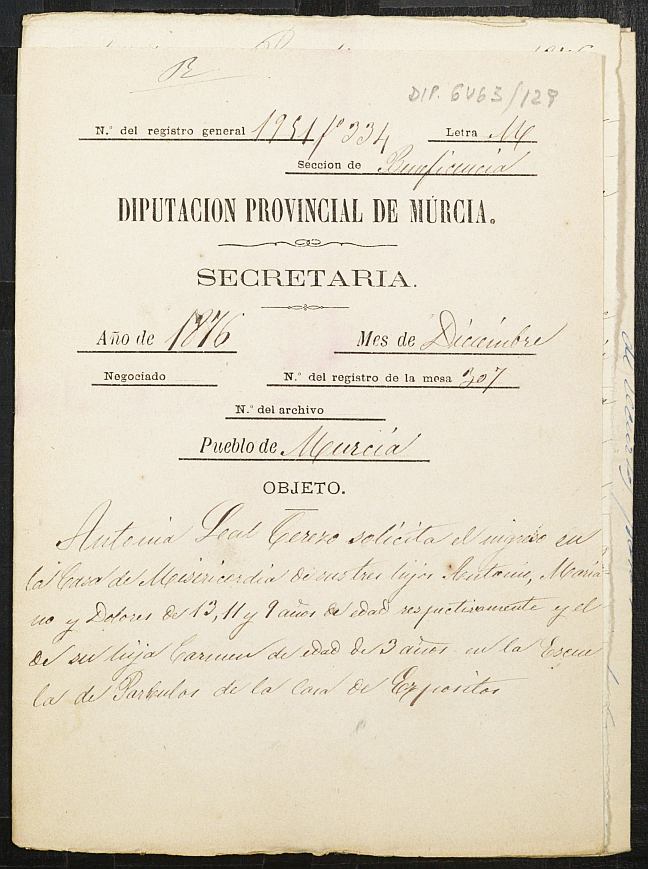 R
DIP. 6463/129
N.º del registro general 1951/º334 Letra M
Seccion de Beneficencia
DIPUTACION PROVINCIAL DE MURCIA.
SECRETARIA.
Año de 1876 Mes de Diciembre
Negociado N.º del registro de la mesa 307
N.º del archivo
Pueblo de Murcia
OBJETO.
Antonia Leal Cerezo solicita el ingreso en
la Casa de Misericordia de sus tres hijos Antonio, Maria-
no y Dolores de 13, 11 y 9 años de edad respectivamente y el
de su hija Carmen de edad de 3 años en la Escue
la de Parbulos de la Casa de Expositos